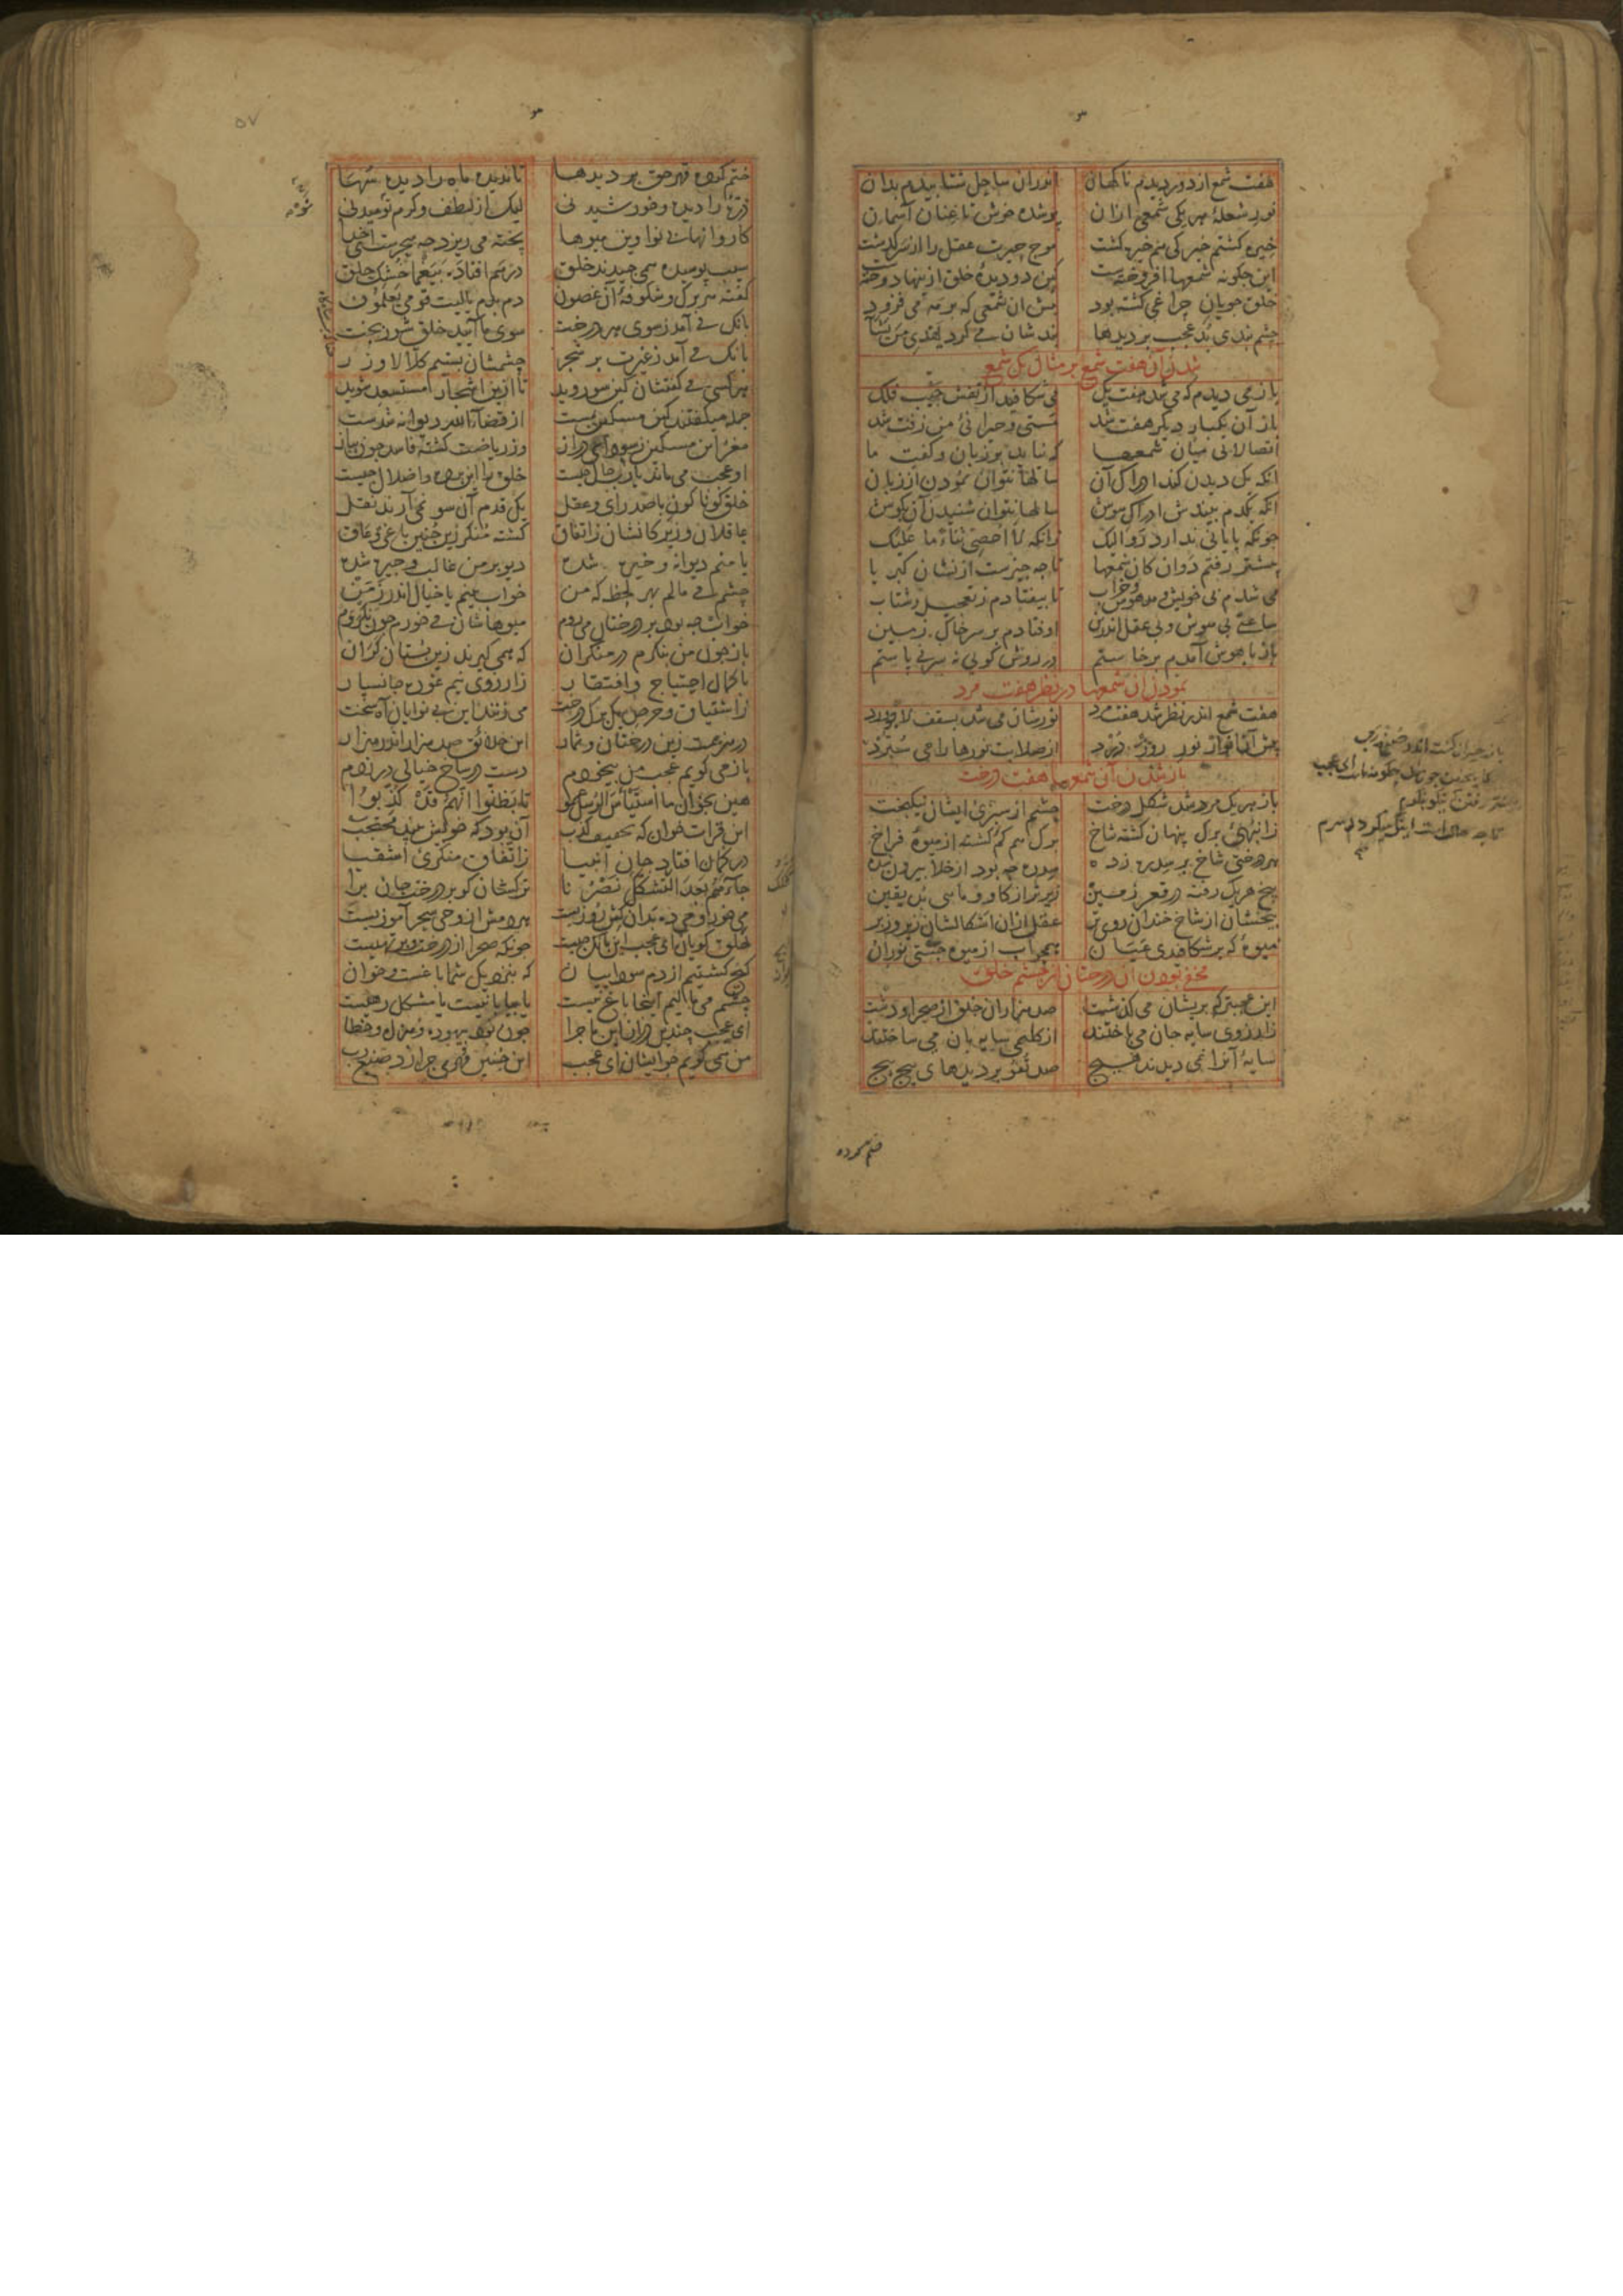 هفت شمع از دور دیدم ناکهان اندران ساحل شتابیدم بدان
نور شعلهٔ هر یکی شمعی ازان بر شده خوش تا عنان آسمان
خیره کشتم خیرکی هم خیره کشت موج حیرت عقل را از سر کذشت
این چکونه شمعها افروختست کین دو دیدهٔ خلق ازینها دوختست
خلق جویان چراغی کشته بود پیش آن شمعی که بر مه می فزود
چشم بندی بد عجب بر دیدها بندشان می کرد یهدی من یشا
شدن آن هفت شمع بر مثال یک شمع
باز می دیدم که می شد هفت یک می شکافد نور او جیب فلک
باز آن یکبار دیکر هفت شد مستی و حیرانی من زفت شد
اتصالاتی میان شمعها که نیاید بر زبان و کفت ما
آنکه یک دیدن کند ادراک آن سالها نتوان نمودن از زبان
آنکه یکدم بیندش ادراک هوش سالها نتوان شنیدن آن بکوش
چونکه پایانی ندارد رو الیک زانکه لا احصی ثناء ما علیک
پیشتر رفتم دوان کان شمعها تا چه چیزست از نشان کبریا
می شدم بی خویش و مدهوش و خراب تا بیفتادم ز تعجیل و شتاب
ساعتی بی هوش و بی عقل اندرین اوفتادم بر سر خاک زمین
باز با هوش آمدم برخاستم در روش کویی نه سر نی پاستم
نمودن آن شمعها در نظر هفت مرد
هفت شمع اندر نظر شد هفت مرد نورشان می شد بسقف لاجورد
پیش آن انوار نور روز درد از صلابت نورها را می سترد
باز شدن آن شمعها هفت درخت
باز هر یک مرد شد شکل درخت چشمم از سبزی ایشان نیکبخت
زانبهی برک پنهان کشته شاخ برک هم کم کشته از میوهٔ فراخ
هر درختی شاخ بر سدره زده سدره چه بود از خلا بیرون شده
بیخ هر یک رفته در قعر زمین زیرتر از کاو و ماهی بد یقین
بیخشان از شاخ خندان روی تر عقل ازان اشکالشان زیر و زبر
میوهٔ که برشکافیدی عیان همچو آب از میوه جستی نور آن
مخفی بودن آن درختان از چشم خلق
این عجبتر که بریشان می کذشت صد هزاران خلق از صحرا و دشت
زارزوی سایه جان می باختند از کلیمی سایه بان می ساختند
سایهٔ آنرا نمی دیدند هیچ صد تفو بر دیدهای پیچ پیچ
باز حیران کشته اندر صنع رب
ختم کرده
۵۷
ختم کرده قهر حق بر دیدها تا ندیده ماه را دیده سها
ذرهٔ را دیده و خورشید نی لیک از لطف و کرم نومید نی
کاروانها بی نوا وین میوها پخته می ریزد چه سحرست ای خدا
سیب پوسیده همی چیدند خلق درهم افتاده بیغما خشک حلق
کفته هر برک و شکوفهٔ آن غصون دم بدم یا لیت قومی یعلمون
بانک می آمد ز سوی هر درخت سوی ما آیید خلق شور بخت
بانک می آمد ز غیرت بر شجر چشمشان بستیم کلا لا وزر
هر کسی می کفتشان کین سو روید تا ازین اشجار مستسعد شوید
جمله میکفتند کین مسکین مست از قضا آلله دیوانه شدست
مغز این مسکین ز سودای دراز وز ریاضت کشته فاسد چون پیاز
او عجب می ماند یا رب حال چیست خلق را این پرده و اضلال چیست
خلق کوناکون با صد رای و عقل یک قدم آن سو نمی آرند نقل
عاقلان و زیرکانشان ز اتفاق کشته منکر زین چنین باغی و عاق
یا منم دیوانه و خیره شده دیو بر من غالب و چیره شده
چشم می مالم بهر لحظه که من خواب بینم یا خیال اندر زمن
خواب چه بود بر درختان می روم میوهاشان می خورم چون نکروم
باز چون من بنکرم در منکران که همی کیرند زین بستان کران
با کمال احتیاج و افتقار زارزوی نیم غوره جانسپار
زاشتیاق و حرص یک برک درخت می زنند این بی نوایان آه سخت
در هزیمت زین درختان و ثمار این خلائق صد هزار اندر هزار
باز می کویم عجب من بیخودم دست در شاخ خیالی در زدم
هین بخوان ما استیأس الرسل عمو تا بظنوا انهم قد کذبوا
این قرائت خوان که تخفیف کذب آن بود که خویش بیند محتجب
در کمان افتاد جان انبیا زاتفاق منکری اشقیا
جاءهم بعد التشکک نصرنا ترکشان کو بر درخت جان برآ
می خور و می ده بدان کش روزیست هر دمش از وحی سحر آموزیست
خلق کویان ای عجب این بانک چیست چونکه صحرا از درخت و بر تهیست
کیج کشتیم از دم سوداییان که بنزدیک شما باغست و خوان
چشم می مالیم اینجا باغ نیست یا بیابانیست یا مشکل رهیست
ای عجب چندین دراز این ماجرا چون بود بیهوده و هزل و خطا
من همی کویم چو ایشان ای عجب این چنین مهری چرا زد صنع رب